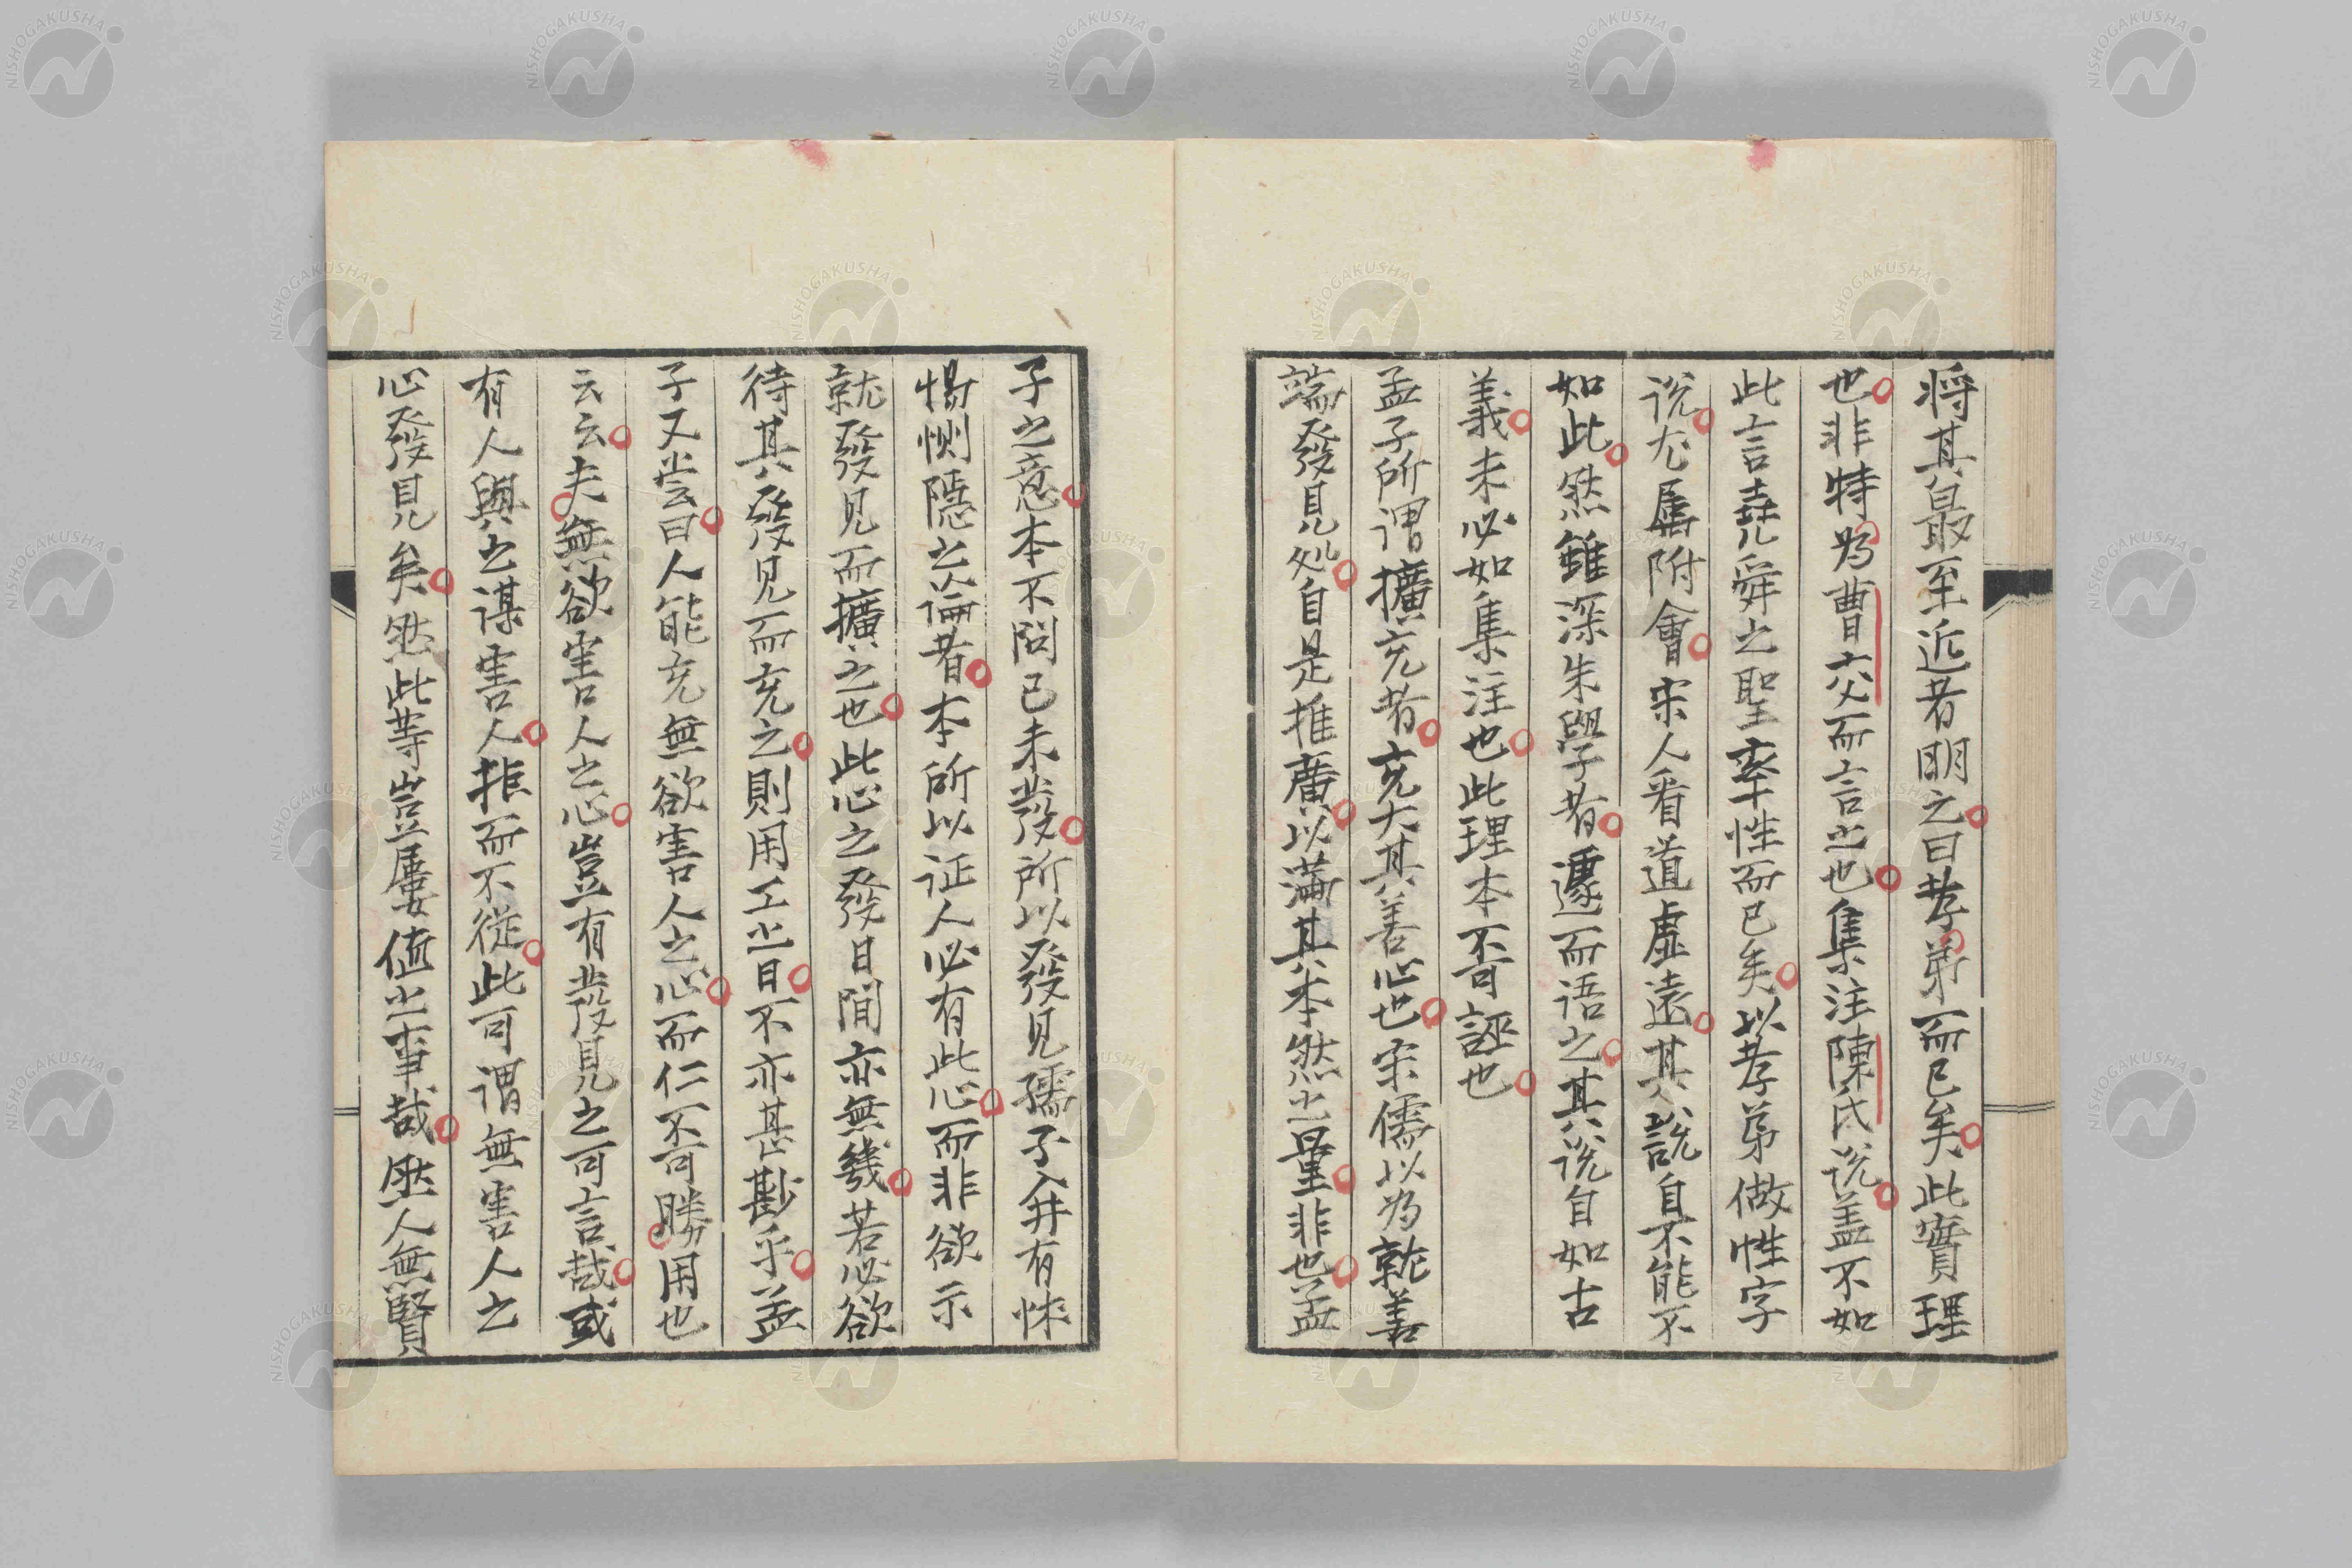 将其最至近者明之曰孝弟而已矣此實理
也非特為曹交而言之也集注陳氏说盖不如
此言堯舜之聖率性而已矣以孝弟做性字
说尤属附會宋人看道虚遠其説自不能不
如此然雖深朱學者遽而语之其说自如古
義未必如集注也此理本不可誣也
孟子所谓擴充者充大其善心也宋儒以為就善
端發見処自是推廣以滿其本然之量非也孟
子之意本不问已未發所以發見孺子入井有怵
惕惻隠之論者本所以证人必有此心而非欲示
就發見而擴之也此心之發日間亦無幾若必欲
待其發見而充之則用工之日不亦甚尠乎孟
子又尝曰人能充無欲害人之心而仁不可勝用也
云云夫無欲害人之心豈有發見之可言哉或
有人與之谋害人拒而不従此可谓無害人之
心發見矣然此等豈屢值之事哉然人無賢
NISHOGAKUSHA